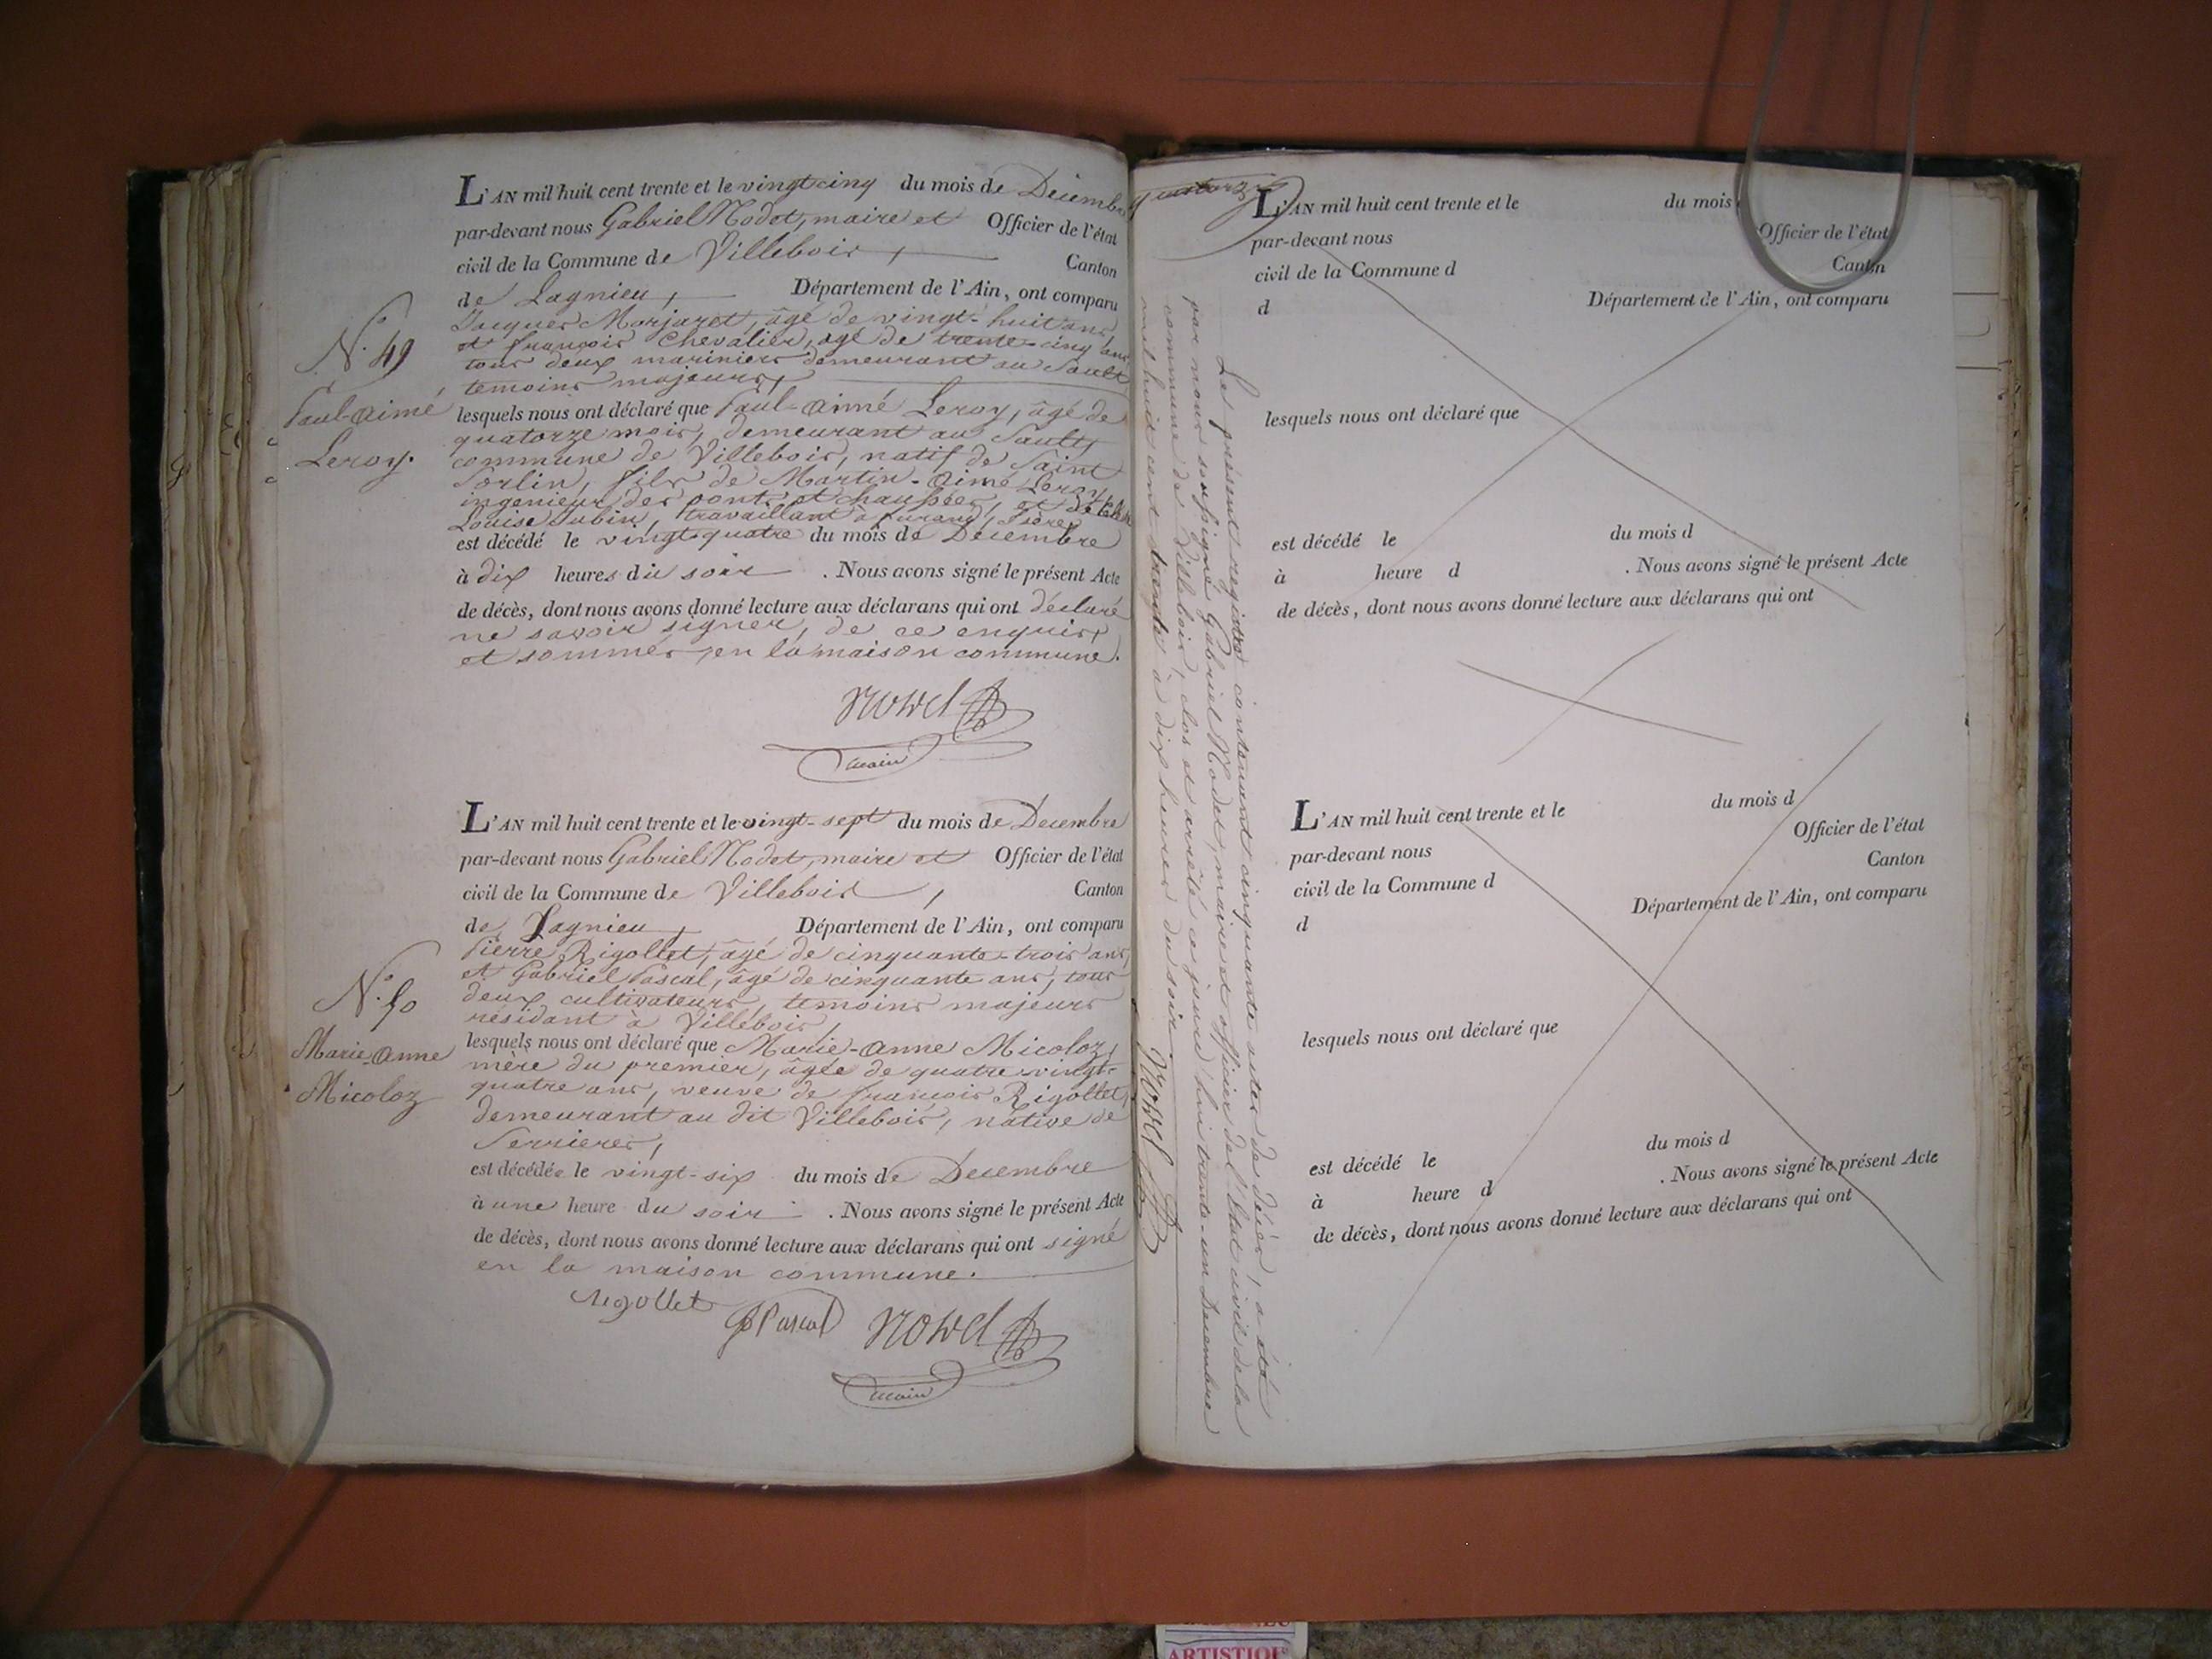 L'AN mil huit cent trente et le vingt cinq du mois de Décembre
par-devant nous Gabriel Nodet, maire et Officier de l'état
civil de la Commune de Villebois, Canton
de Lagnieu, Département de l'Ain, ont comparu
Jacques Morjaret, âgé de vingt-huit ans,
et françois Chevalier, agé de trente-cinq ans
tous deux mariniers demeurant au Sault
temoins majeurs,
N.º 49
Paul-aimé
Leroy.
lesquels nous ont déclaré que Paul-aimé Leroy, âgé de
quatorze mois, demeurant au Sault,
commune de Villebois, natif de Saint
Sorlin, fils de Martin-Aimé Leroy,
ingenieur des ponts et chaussées, et de
Louise Aubin, travaillant à
est décédé le vingt-quatre du mois de Décembre
à dix heures du soir . Nous avons signé le présent Acte
de décès, dont nous avons donné lecture aux déclarans qui ont déclaré
ne savoir signer, de ce enquis,
et sommés, en la maison commune.
Nodet
maire
L'AN mil huit cent trente et le vingt-sept du mois de Decembre
par-devant nous Gabriel Nodet, maire et Officier de l'état
civil de la Commune de Villebois, Canton
de Lagnieu, Département de l'Ain, ont comparu
Pierre Rigollet, âgé de cinquante-trois ans,
et Gabriel Pascal, âgé de cinquante ans, tous
deux cultivateurs, temoins majeurs
résidant à Villebois,
N.º 50
Marie-Anne
Micoloz
lesquels nous ont déclaré que Marie-Anne Micoloz,
mère du premier, âgée de quatre-vingt-
quatre ans, veuve de françois Rigollet,
demeurant au dit Villebois, native de
Serrieres,
est décédée le vingt-six du mois de Decembre
à une heure du soir . Nous avons signé le présent Acte
de décès, dont nous avons donné lecture aux déclarans qui ont signé
en la maison commune.
Rigollet
G Pascal Nodet
maire
quatorze
Le présent registre contenant cinquante actes de décès, a été
par nous soussigné Gabriel Nodet, maire et officier de l'état civil de la
commune de Villebois, clos et arrêté ce jourd'hui trente-un Decembre
mil huit cent trente à dix heures du soir. Nodet
L'AN mil huit cent trente et le du mois
par-devant nous Officier de l'état
civil de la Commune d Canton
d Département de l'Ain, ont comparu
lesquels nous ont déclaré que
est décédé le du mois d
à heure d . Nous avons signé le présent Acte
de décès, dont nous avons donné lecture aux déclarans qui ont
L'AN mil huit cent trente et le du mois d
par-devant nous Officier de l'état
civil de la Commune d Canton
d Département de l'Ain, ont comparu
lesquels nous ont déclaré que
est décédé le du mois d
à heure d . Nous avons signé le présent Acte
de décès, dont nous avons donné lecture aux déclarans qui ont
ARTISTIQUE